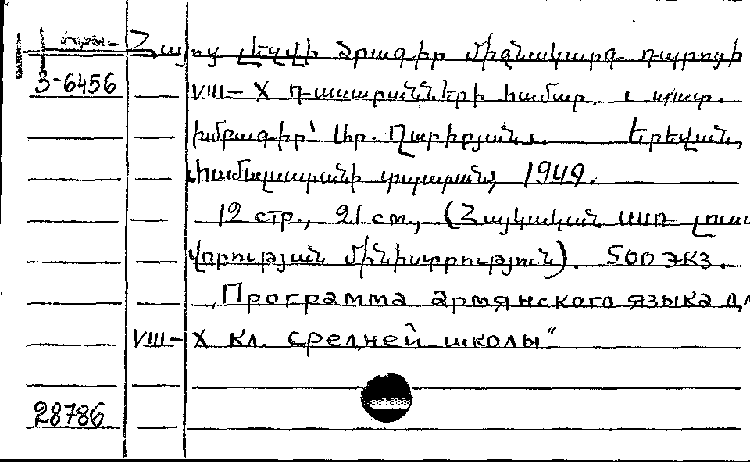 Հայոց լեզվի ծրագիր միջնակարգ դպրոցի
3-6456 VIII – X դասարանների համար.
Խմբագիր՝ Ար. Ղարիբյան. Երևան,
Համալսարանի տպարան, 1949.
12 стр., 21 см., (Հայկական ՍՍՌ լուսա
վորության մինիստրություն). 500 экз.
„Программа армянского языка дл
VIII – X кл. средней школы"
28786